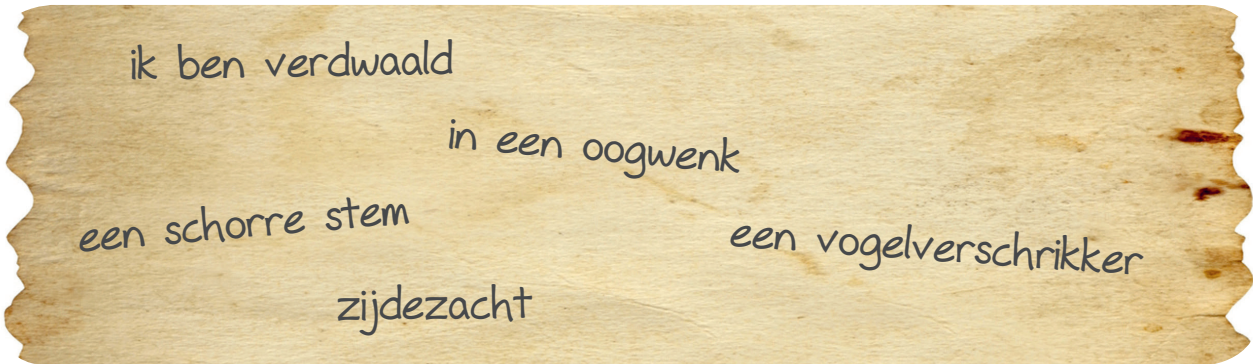 ik ben verdwaald
in een oogwenk
een schorre stem
een vogelverschrikker
zijdezacht